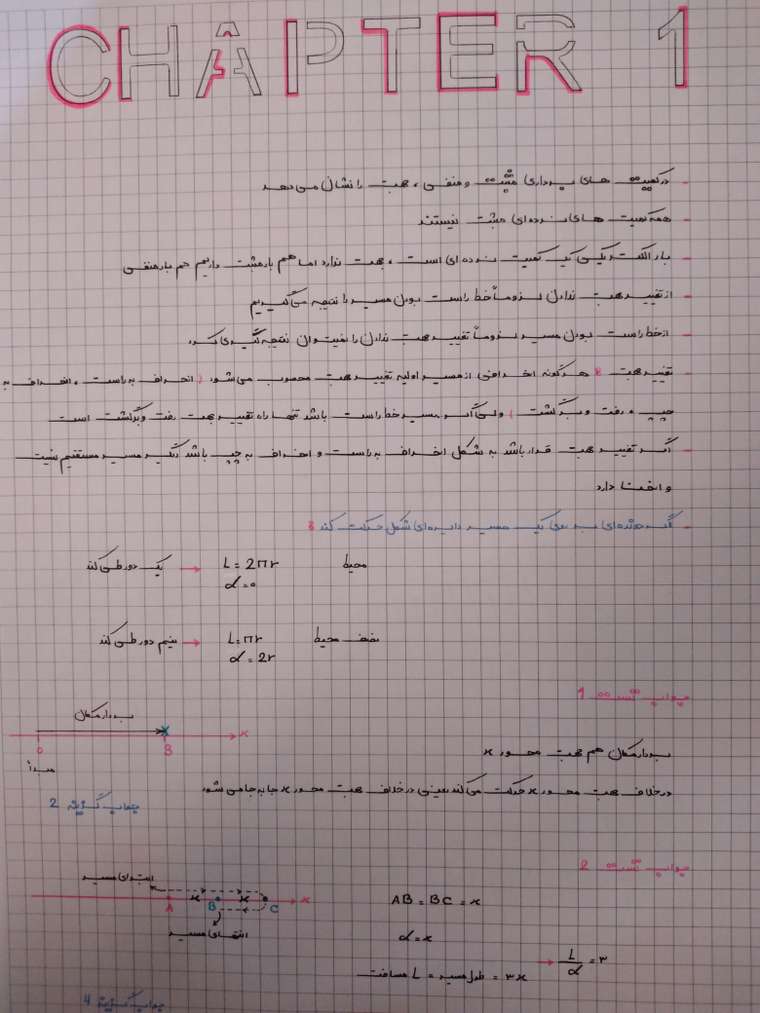 CHAPTER 1
- در کمیت های برداری مثبت و منفی ، جهت را نشان می دهد
- همه کمیت های نرده ای مثبت نیستند
- بار الکتریکی یک کمیت نرده ای است ، جهت ندارد اما هم بار مثبت داریم هم بار منفی
- از تغییر جهت ندادن لزوماً خط راست بودن مسیر را نتیجه می گیریم
- از خط راست بودن مسیر لزوماً تغییر جهت ندادن را نمیتوان نتیجه گیری کرد
- تغییر جهت : هرگونه انحرافی از مسیر اولیه تغییر جهت محسوب می شود ( انحراف به راست ، انحراف به
چپ ، رفت و برگشت ) ولی اگر مسیر خط راست باشد تنها راه تغییر جهت رفت و برگشت است
- اگر تغییر جهت قرار باشد به شکل انحراف به راست و انحراف به چپ باشد دیگر مسیر مستقیم نیست
و انحنا دارد
- اگر متحرکی بر روی یک مسیر دایره ای شکل حرکت کند :
محیط L = 2πr → یک دور طی کند
d = 0
نصف محیط L = πr → نیم دور طی کند
d = 2r
جواب تست 1
بردار مکان
x
0 B
مبدأ
بردار مکان هم جهت محور x
در خلاف جهت محور x حرکت می کند یعنی در خلاف جهت محور x جابه جا می شود
جواب گزینه 2
جواب تست 2
ابتدای مسیر
x x x
A B C
انتهای مسیر
AB = BC = x
d = x
مسافت L = طول مسیر = ۳x → L/d = ۳
جواب گزینه 4